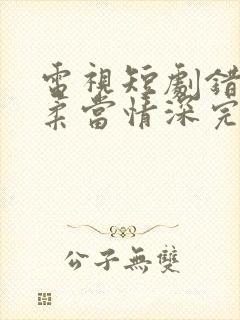 電視短劇錯
柔當情深完
公子無雙